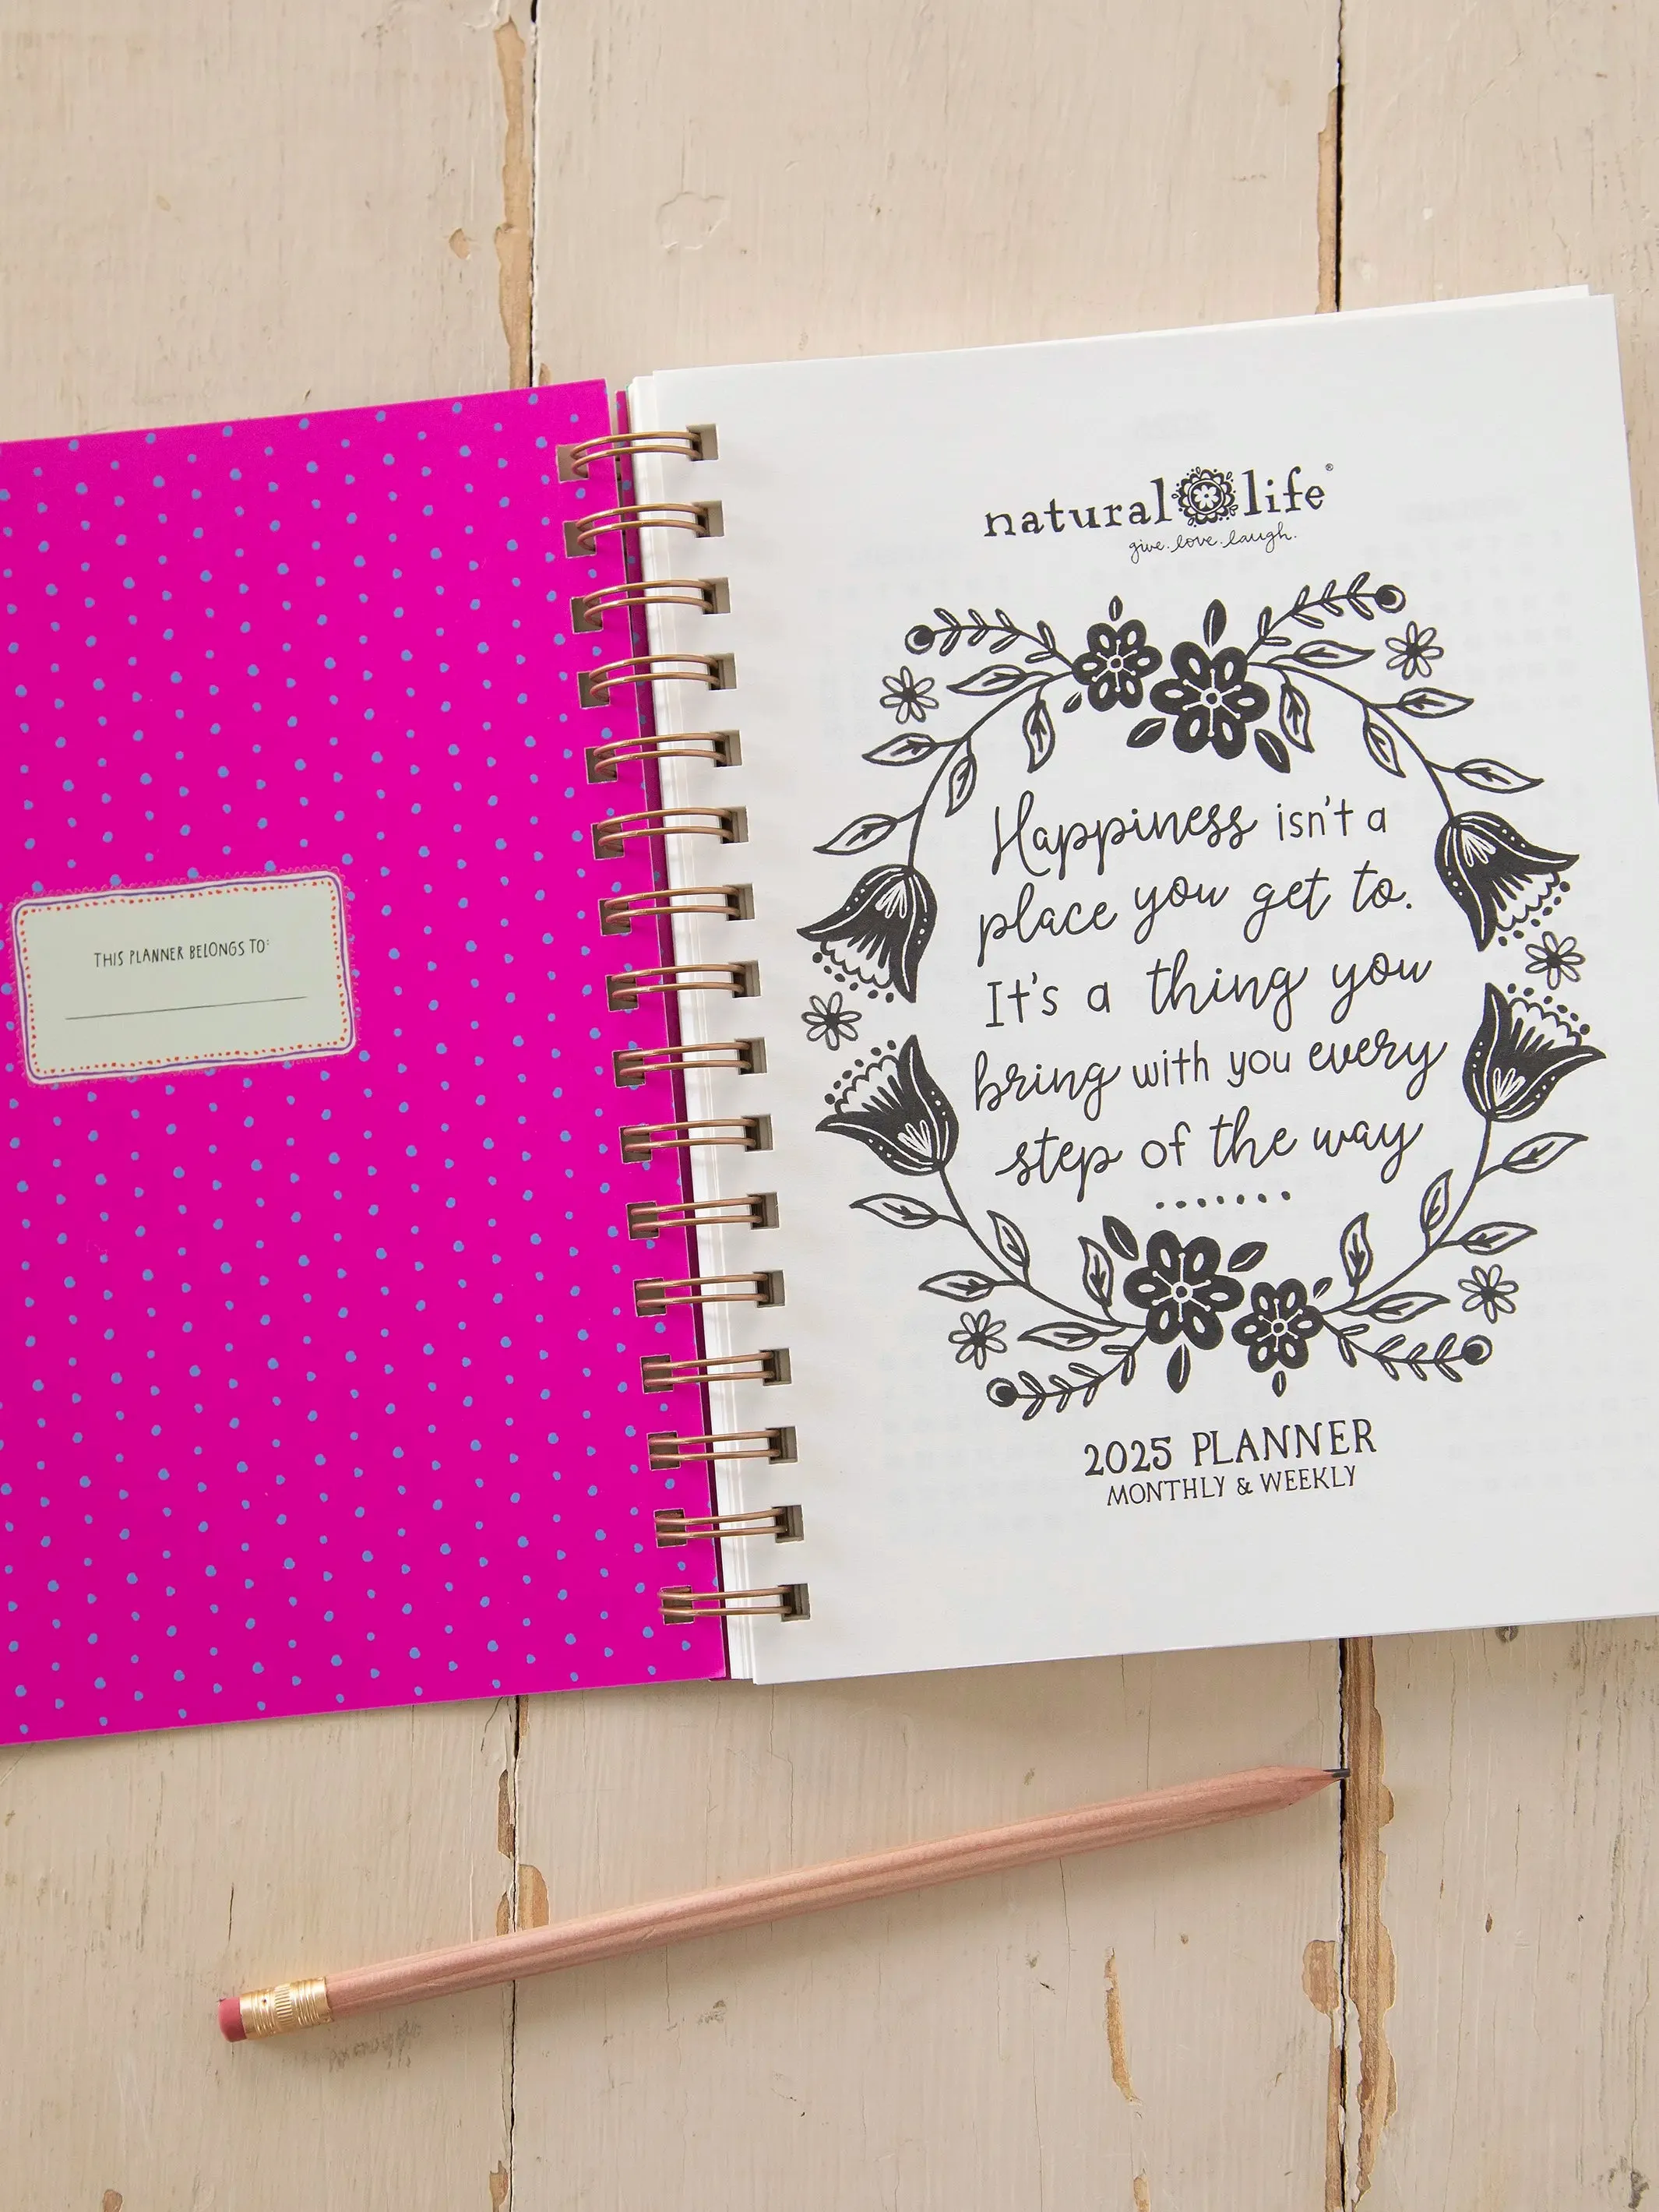 THIS PLANNER BELONGS TO:
natural life®
give. love. laugh.
Happiness isn't a
place you get to.
It's a thing you
bring with you every
step of the way
2025 PLANNER
MONTHLY & WEEKLY